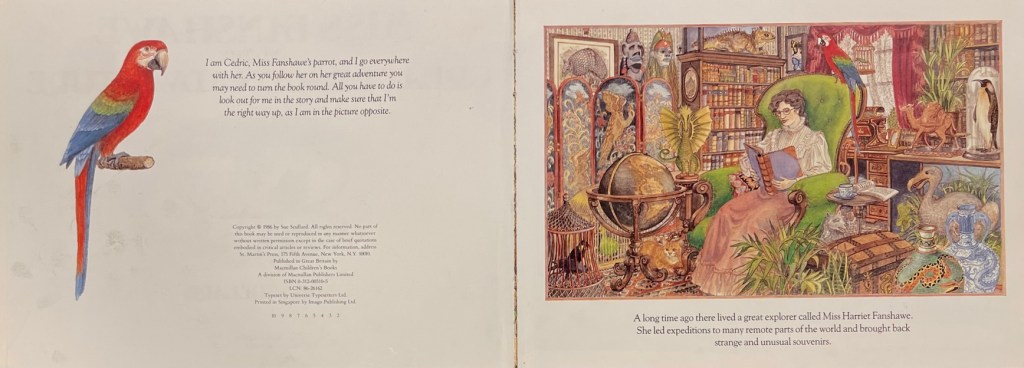 I am Cedric, Miss Fanshawe's parrot, and I go everywhere
with her. As you follow her on her great adventure you
may need to turn the book round. All you have to do is
look out for me in the story and make sure that I'm
the right way up, as I am in the picture opposite.
Copyright © 1986 by Sue Scullard. All rights reserved. No part of
this book may be used or reproduced in any manner whatsoever
without written permission except in the case of brief quotations
embodied in critical articles or reviews. For information, address
St. Martin's Press, 175 Fifth Avenue, New York, N.Y. 10010.
Published in Great Britain by
Macmillan Children's Books
A division of Macmillan Publishers Limited
ISBN
LCN: 86-
Typeset by Universe Typesetters Ltd
Printed in Singapore by Imago Publishing Ltd
10 9 8 7 6 5 4 3 2
A long time ago there lived a great explorer called Miss Harriet Fanshawe.
She led expeditions to many remote parts of the world and brought back
strange and unusual souvenirs.